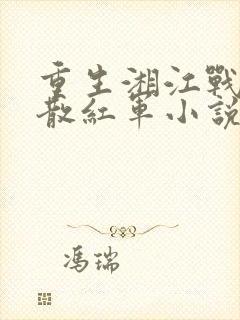 重生湘江戰
散紅軍小說
馮瑞